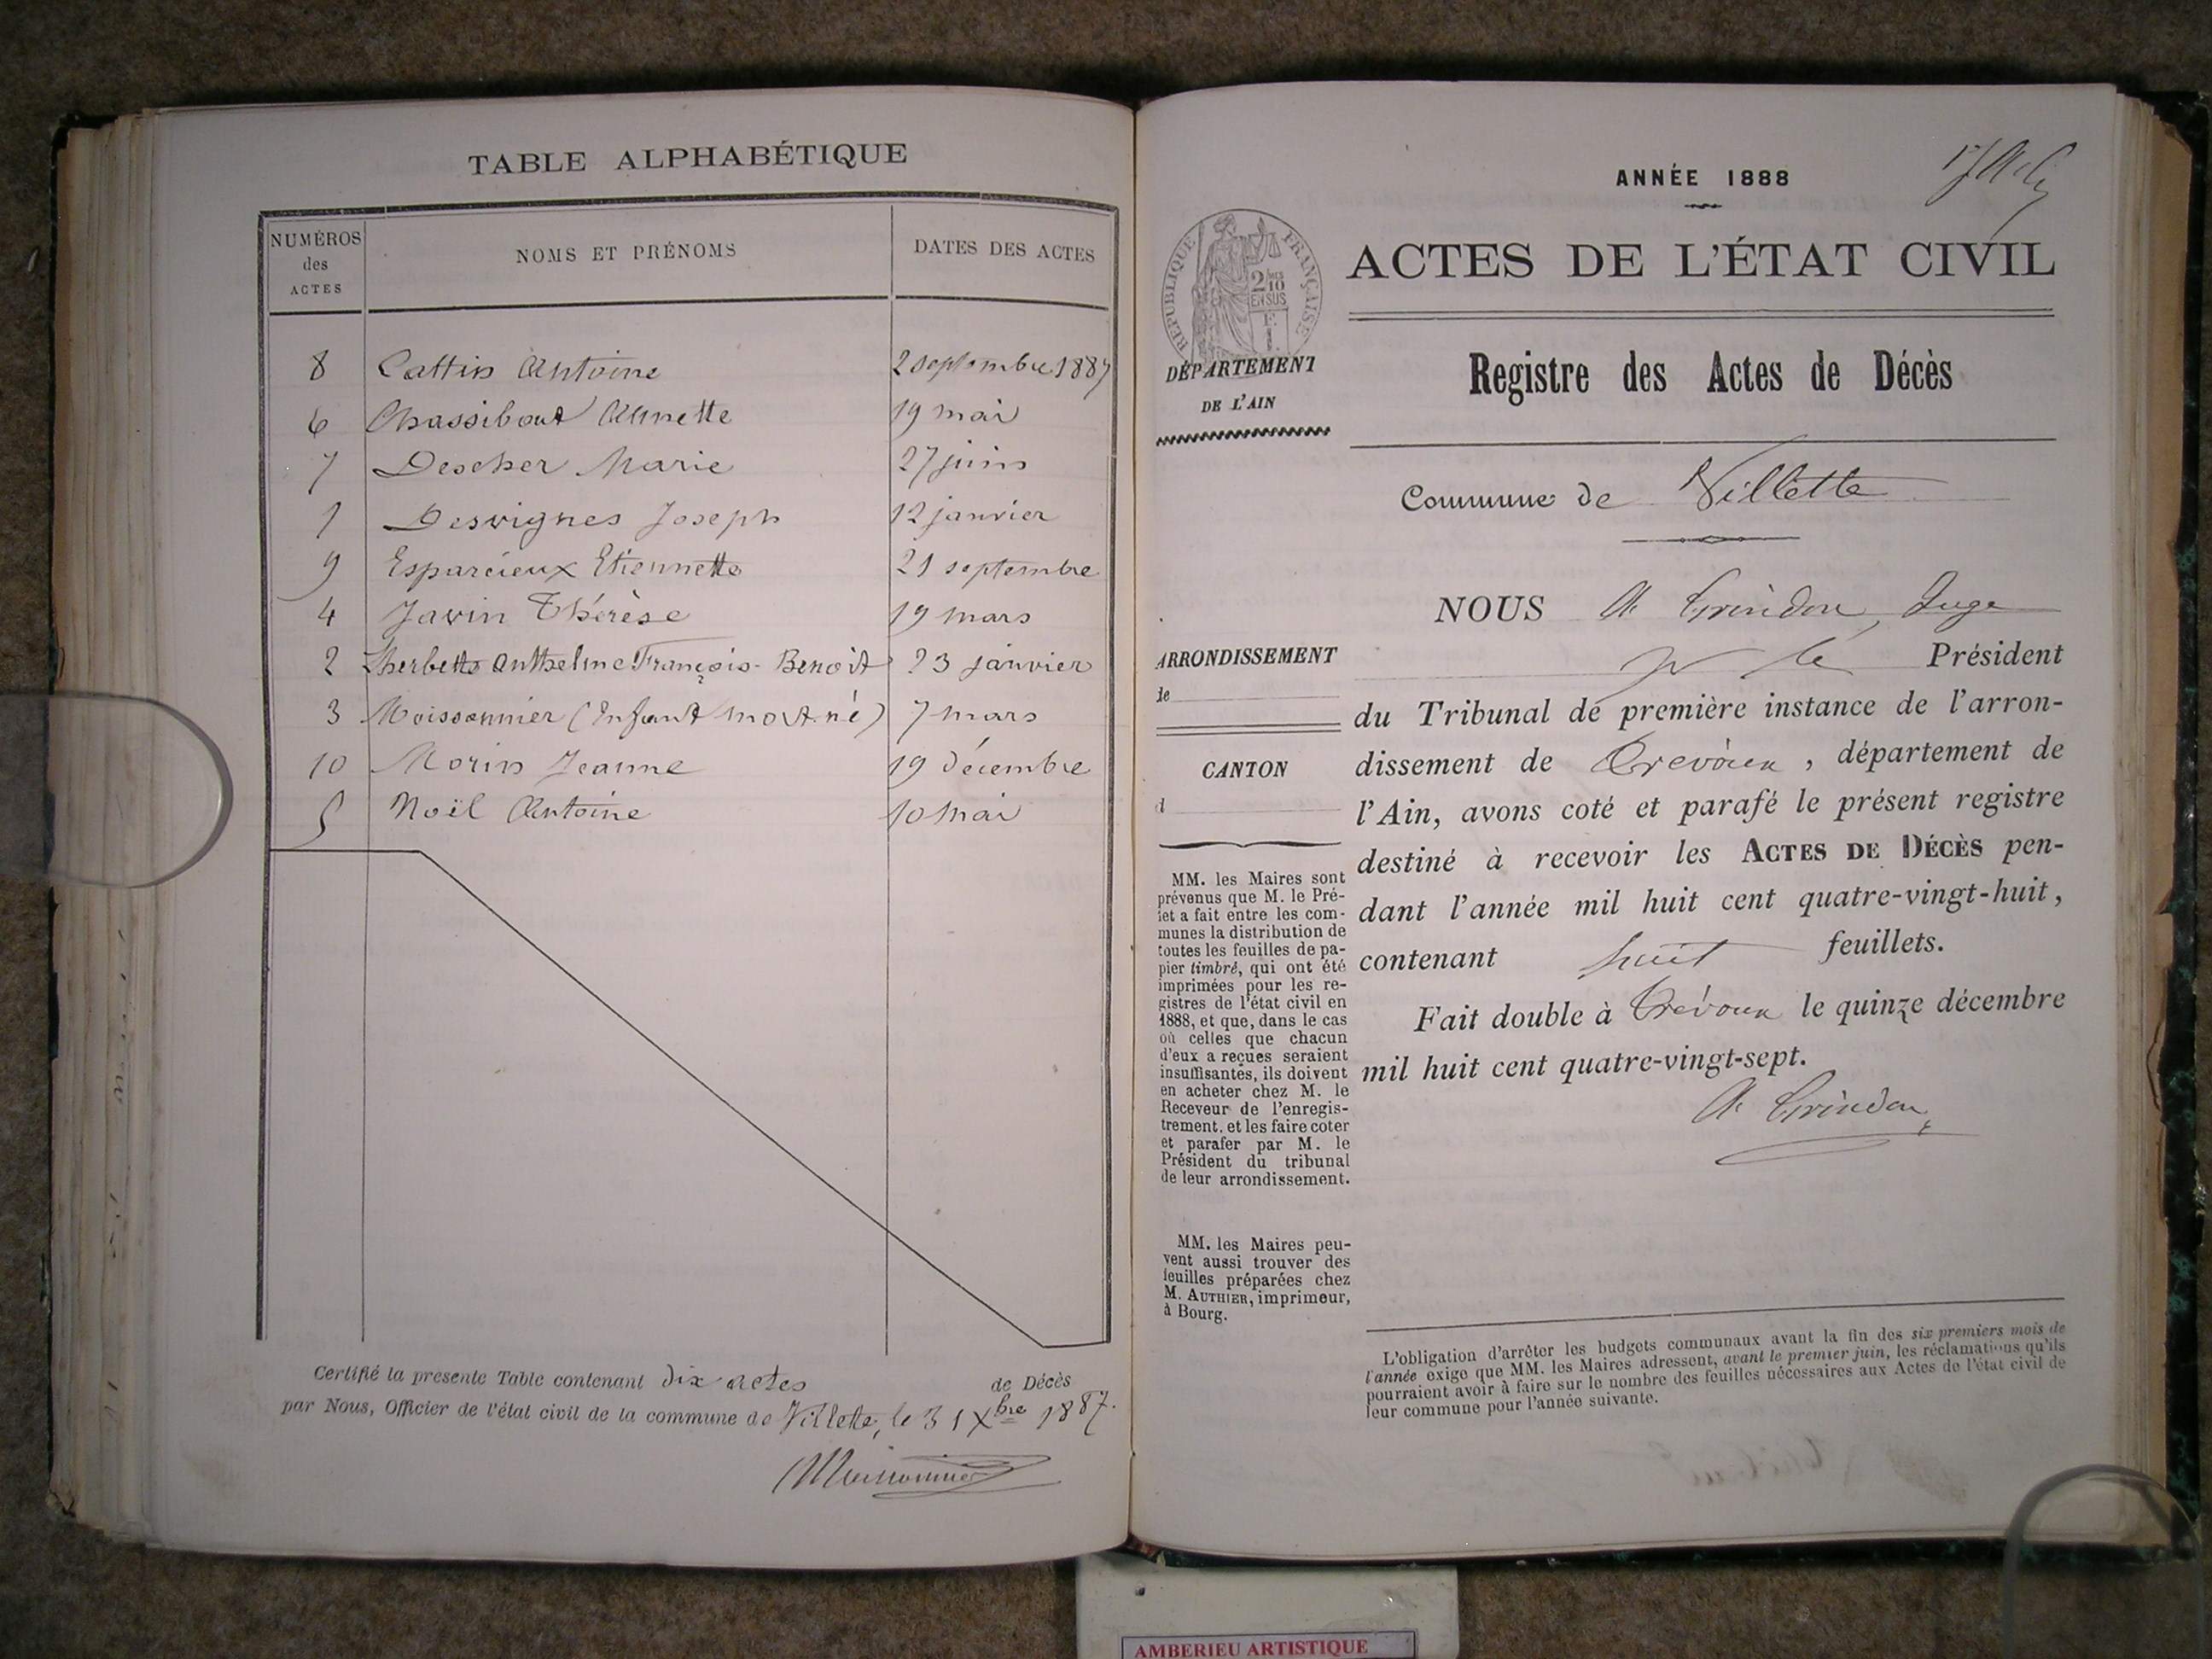 TABLE ALPHABÉTIQUE
NUMÉROS des ACTES
NOMS ET PRÉNOMS
DATES DES ACTES
8 Cattin Antoine 2 septembre 1887
6 Chassibout Annette 19 mai
7 Descher Marie 27 juin
1 Desvignes Joseph 12 janvier
9 Esparcieux Etiennette 21 septembre
4 Javin Thérèse 19 mars
2 Lherbette Anthelme François-Benoit 23 janvier
3 Moissonnier (Enfant mort-né) 7 mars
10 Morin Jeanne 19 décembre
5 Noël Antoine 10 mai
Certifié la présente Table contenant dix actes de Décès
par Nous, Officier de l'état civil de la commune de Villette, le 31 Xbre 1887.
Moissonnier
ANNÉE 1888
RÉPUBLIQUE FRANÇAISE
2 DES 10 EN SUS
ACTES DE L'ÉTAT CIVIL
DÉPARTEMENT
DE L'AIN
Registre des Actes de Décès
Commune de Villette
NOUS A Grindon, Juge
pr le Président
ARRONDISSEMENT
de
CANTON
d
du Tribunal de première instance de l'arron-
dissement de Trévoux, département de
l'Ain, avons coté et parafé le présent registre
destiné à recevoir les ACTES DE DÉCÈS pen-
dant l'année mil huit cent quatre-vingt-huit,
contenant huit feuillets.
Fait double à Trévoux le quinze décembre
mil huit cent quatre-vingt-sept.
A Grindon
MM. les Maires sont
prévenus que M. le Pré-
fet a fait entre les com-
munes la distribution de
toutes les feuilles de pa-
pier timbré, qui ont été
imprimées pour les re-
gistres de l'état civil en
1888, et que, dans le cas
où celles que chacun
d'eux a reçues seraient
insuffisantes, ils doivent
en acheter chez M. le
Receveur de l'enregis-
trement, et les faire coter
et parafer par M. le
Président du tribunal
de leur arrondissement.
MM. les Maires peu-
vent aussi trouver des
feuilles préparées chez
M. AUTHIER, imprimeur,
à Bourg.
L'obligation d'arrêter les budgets communaux avant la fin des six premiers mois de
l'année exige que MM. les Maires adressent, avant le premier juin, les réclamations qu'ils
pourraient avoir à faire sur le nombre des feuilles nécessaires aux Actes de l'état civil de
leur commune pour l'année suivante.
AMBERIEU ARTISTIQUE